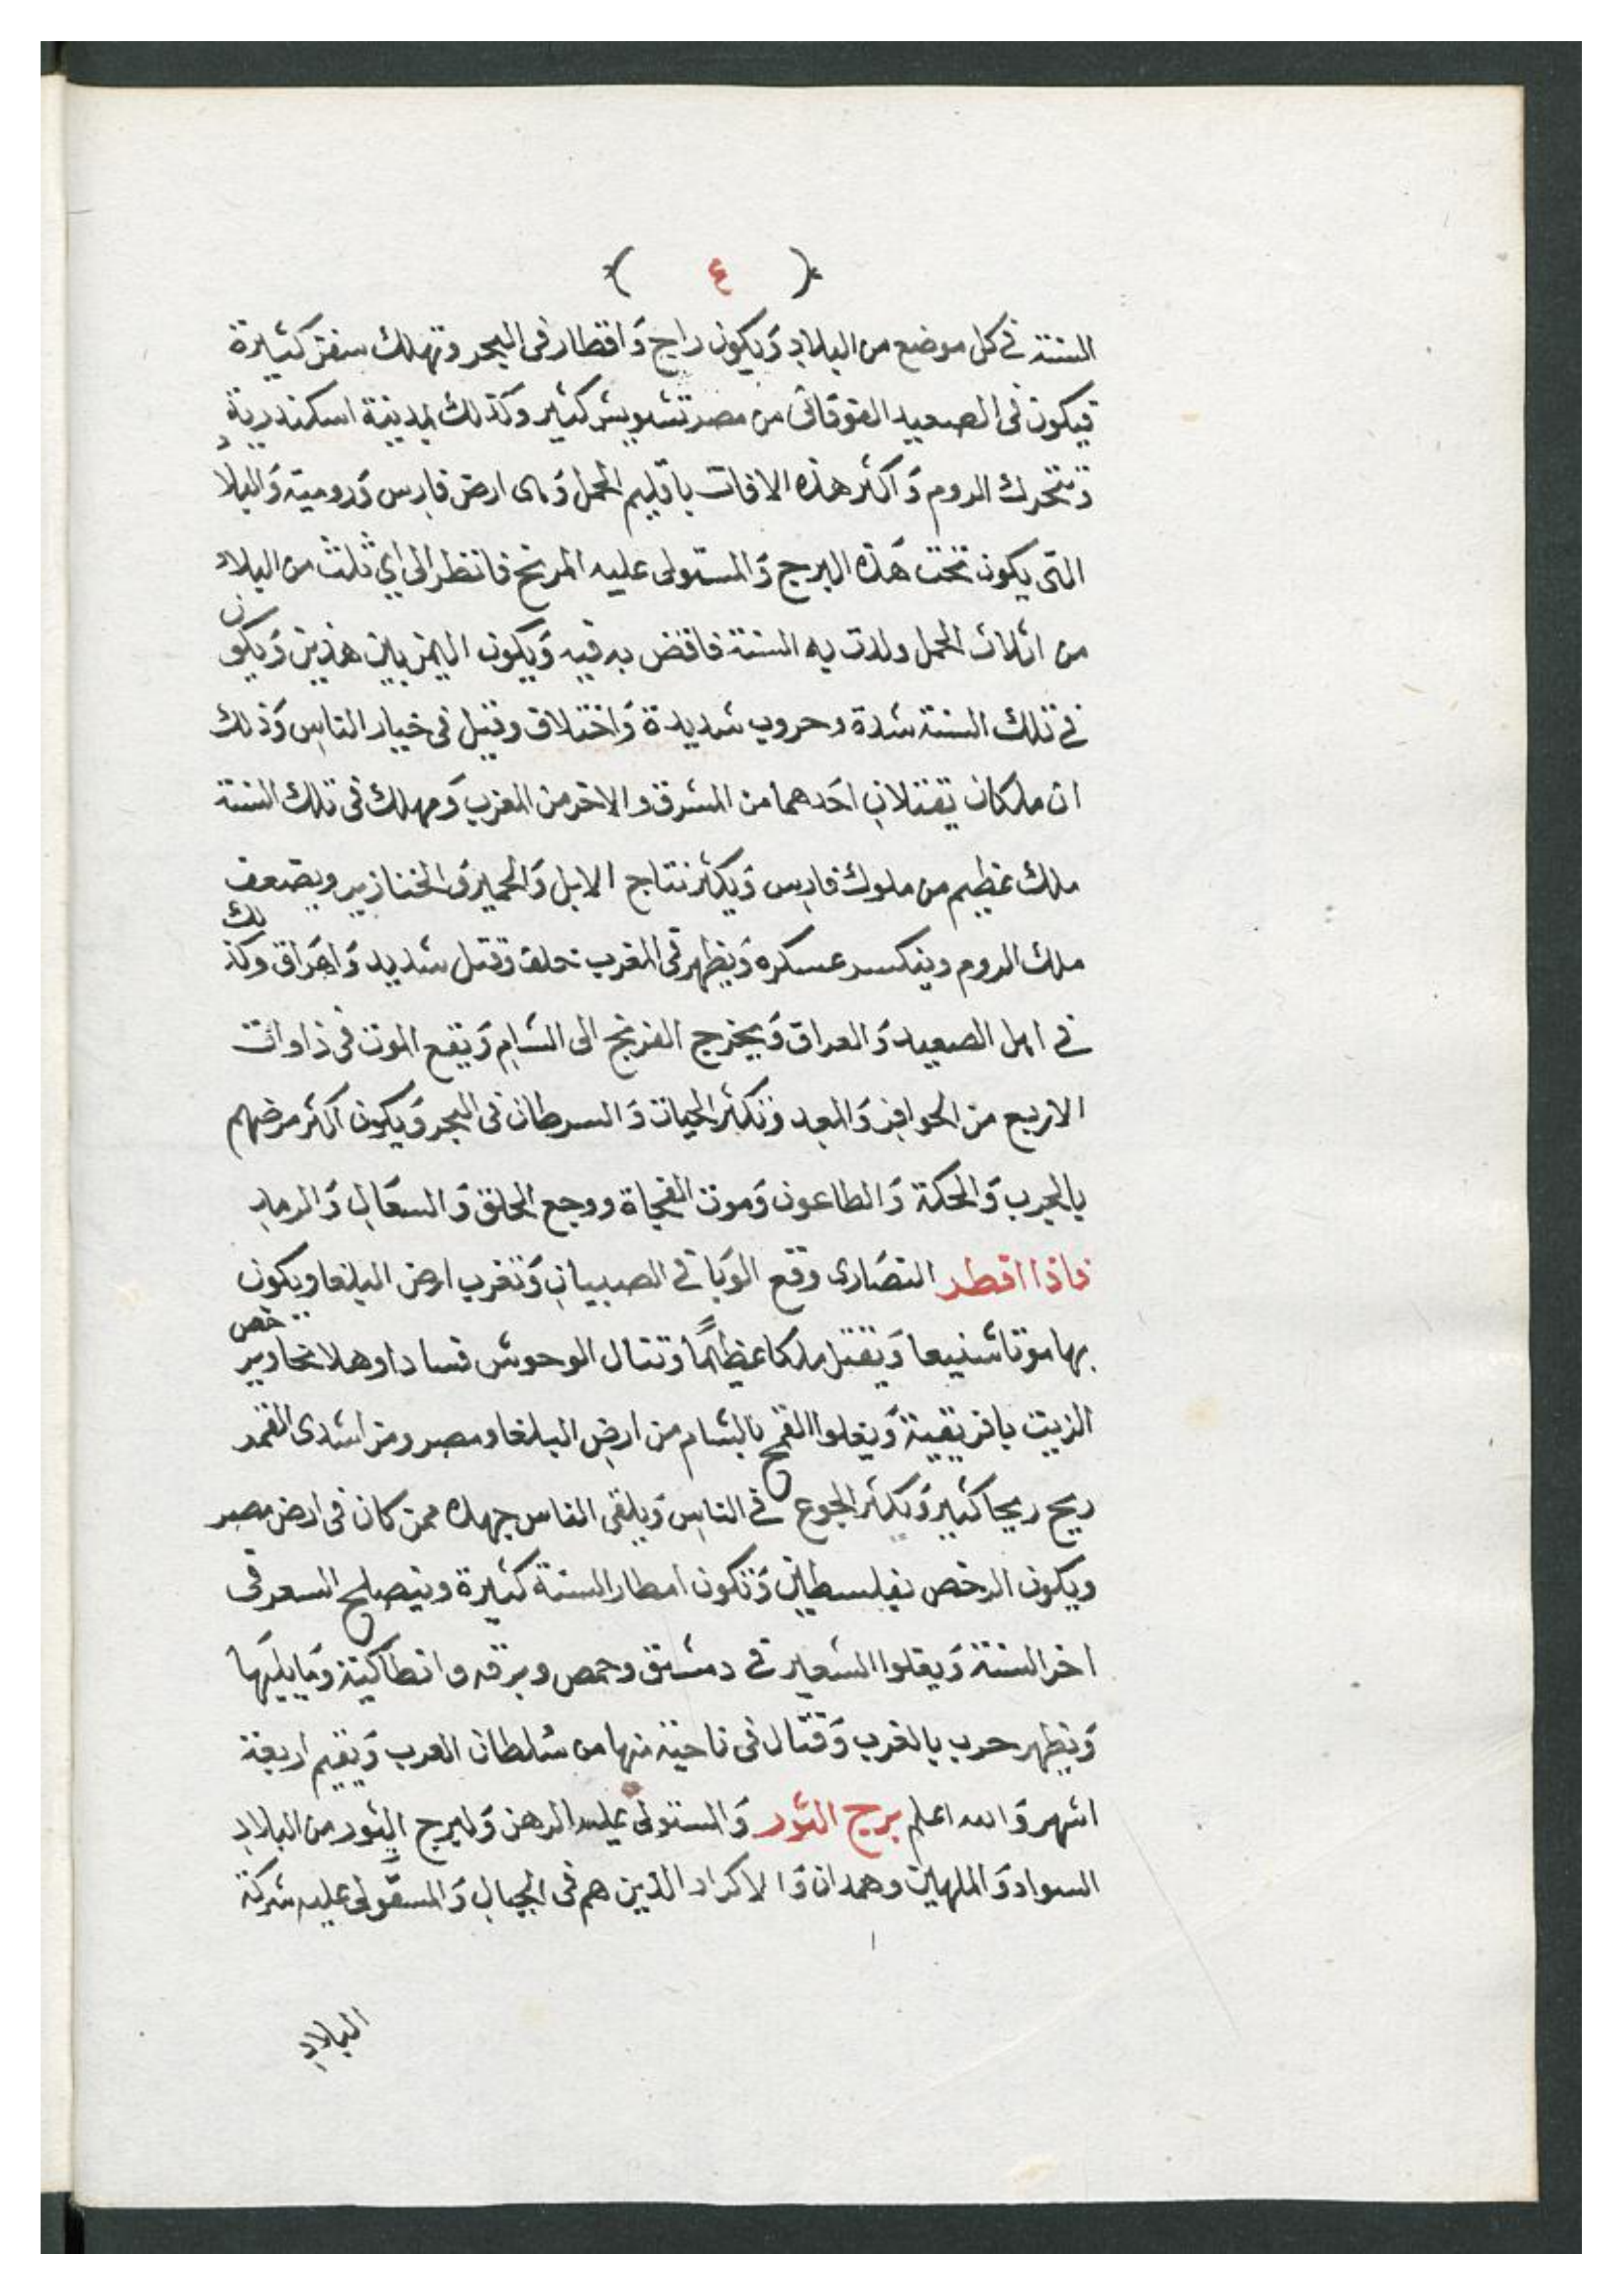 ( ٤ )
السنة في كل موضع من البلاد وَيكون راج وَاقطار فى البحر وتهلك سفن كثيرة
فيكون فى الصعيد الفوقانى من مصر تشويش كثير وكذلك بمدينة اسكندرية
وَتتحرك الروم وَاكثر هذه الافات باقليم الحمل وَ ارض فارس وَرومية وَالبلاد
التى يكون تحت هَذه البرج وَالمستولى عليه المريخ فانظر الى اي ثلث من البلاد
من اثلاث الحمل ولدت به السنة فاقض به فيه وَيكون بين هذين وَيكون
في تلك السنة شدة وحروب شديدة وَاختلاف وقتل فى خيار الناس وَذلك
ان ملكان تقتتلان احَدهما من المشرق والاخر من المغرب وَمهلك فى تلك السنة
ملك عظيم من ملوك فارس وَيكثر نتاج الابل وَالحمير وَالخنازير ويضعف
ملك الروم وينكسر عسكره وَيظهر فى المغرب وقتل شديد وَاهَراق وكذلك
في اهل الصعيد وَالعراق وَيخرج الفرنج الى الشام وَيقع الموت فى ذاوات
الاربع من الحوافر وَ وَتكثر الحيات وَالسرطان فى البحر وَيكون اكثر مرضهم
بالجرب وَالحكة وَالطاعون وَموت الفجاة ووجع الحلق وَالسعَال وَالرماد
فاذا افطر النصَارى وقع الوَبا في الصبيان وَتخرب ارض البلغا ويكون
بها موتا شنيعا وَيقتل ملكا عظيمًا وَتنال الوحوش فسادا وهلاكا ويرخص
الزيت بافريقية وَيغلوا القمح بالشام من ارض البلغا ومصر ومن اشدى القمر
ريح ريحا كثير وَيكثر الجوع في الناس وَيلقى الناس جهدا ممن كان فى ارض مصر
ويكون الرخص بفلسطين وَتكون امطار السنة كثيرة ويتصلح السعر فى
اخر السنة وَيغلوا الشعير في دمشق وحمص وبرقه وانطاكية وَما يليَها
وَيظهر حرب بالغرب وَقتال فى ناحية منها من سلطان العرب وَيقيم اربعة
اشهر وَالله اعلم برج الثور وَالمستولى عليه الزهرة وَلبرج الثور من البلاد
السواد وَالماهين وهمدان وَالاكراد الذين هم فى الجبال وَالمستولى عليه شركة
البلاد